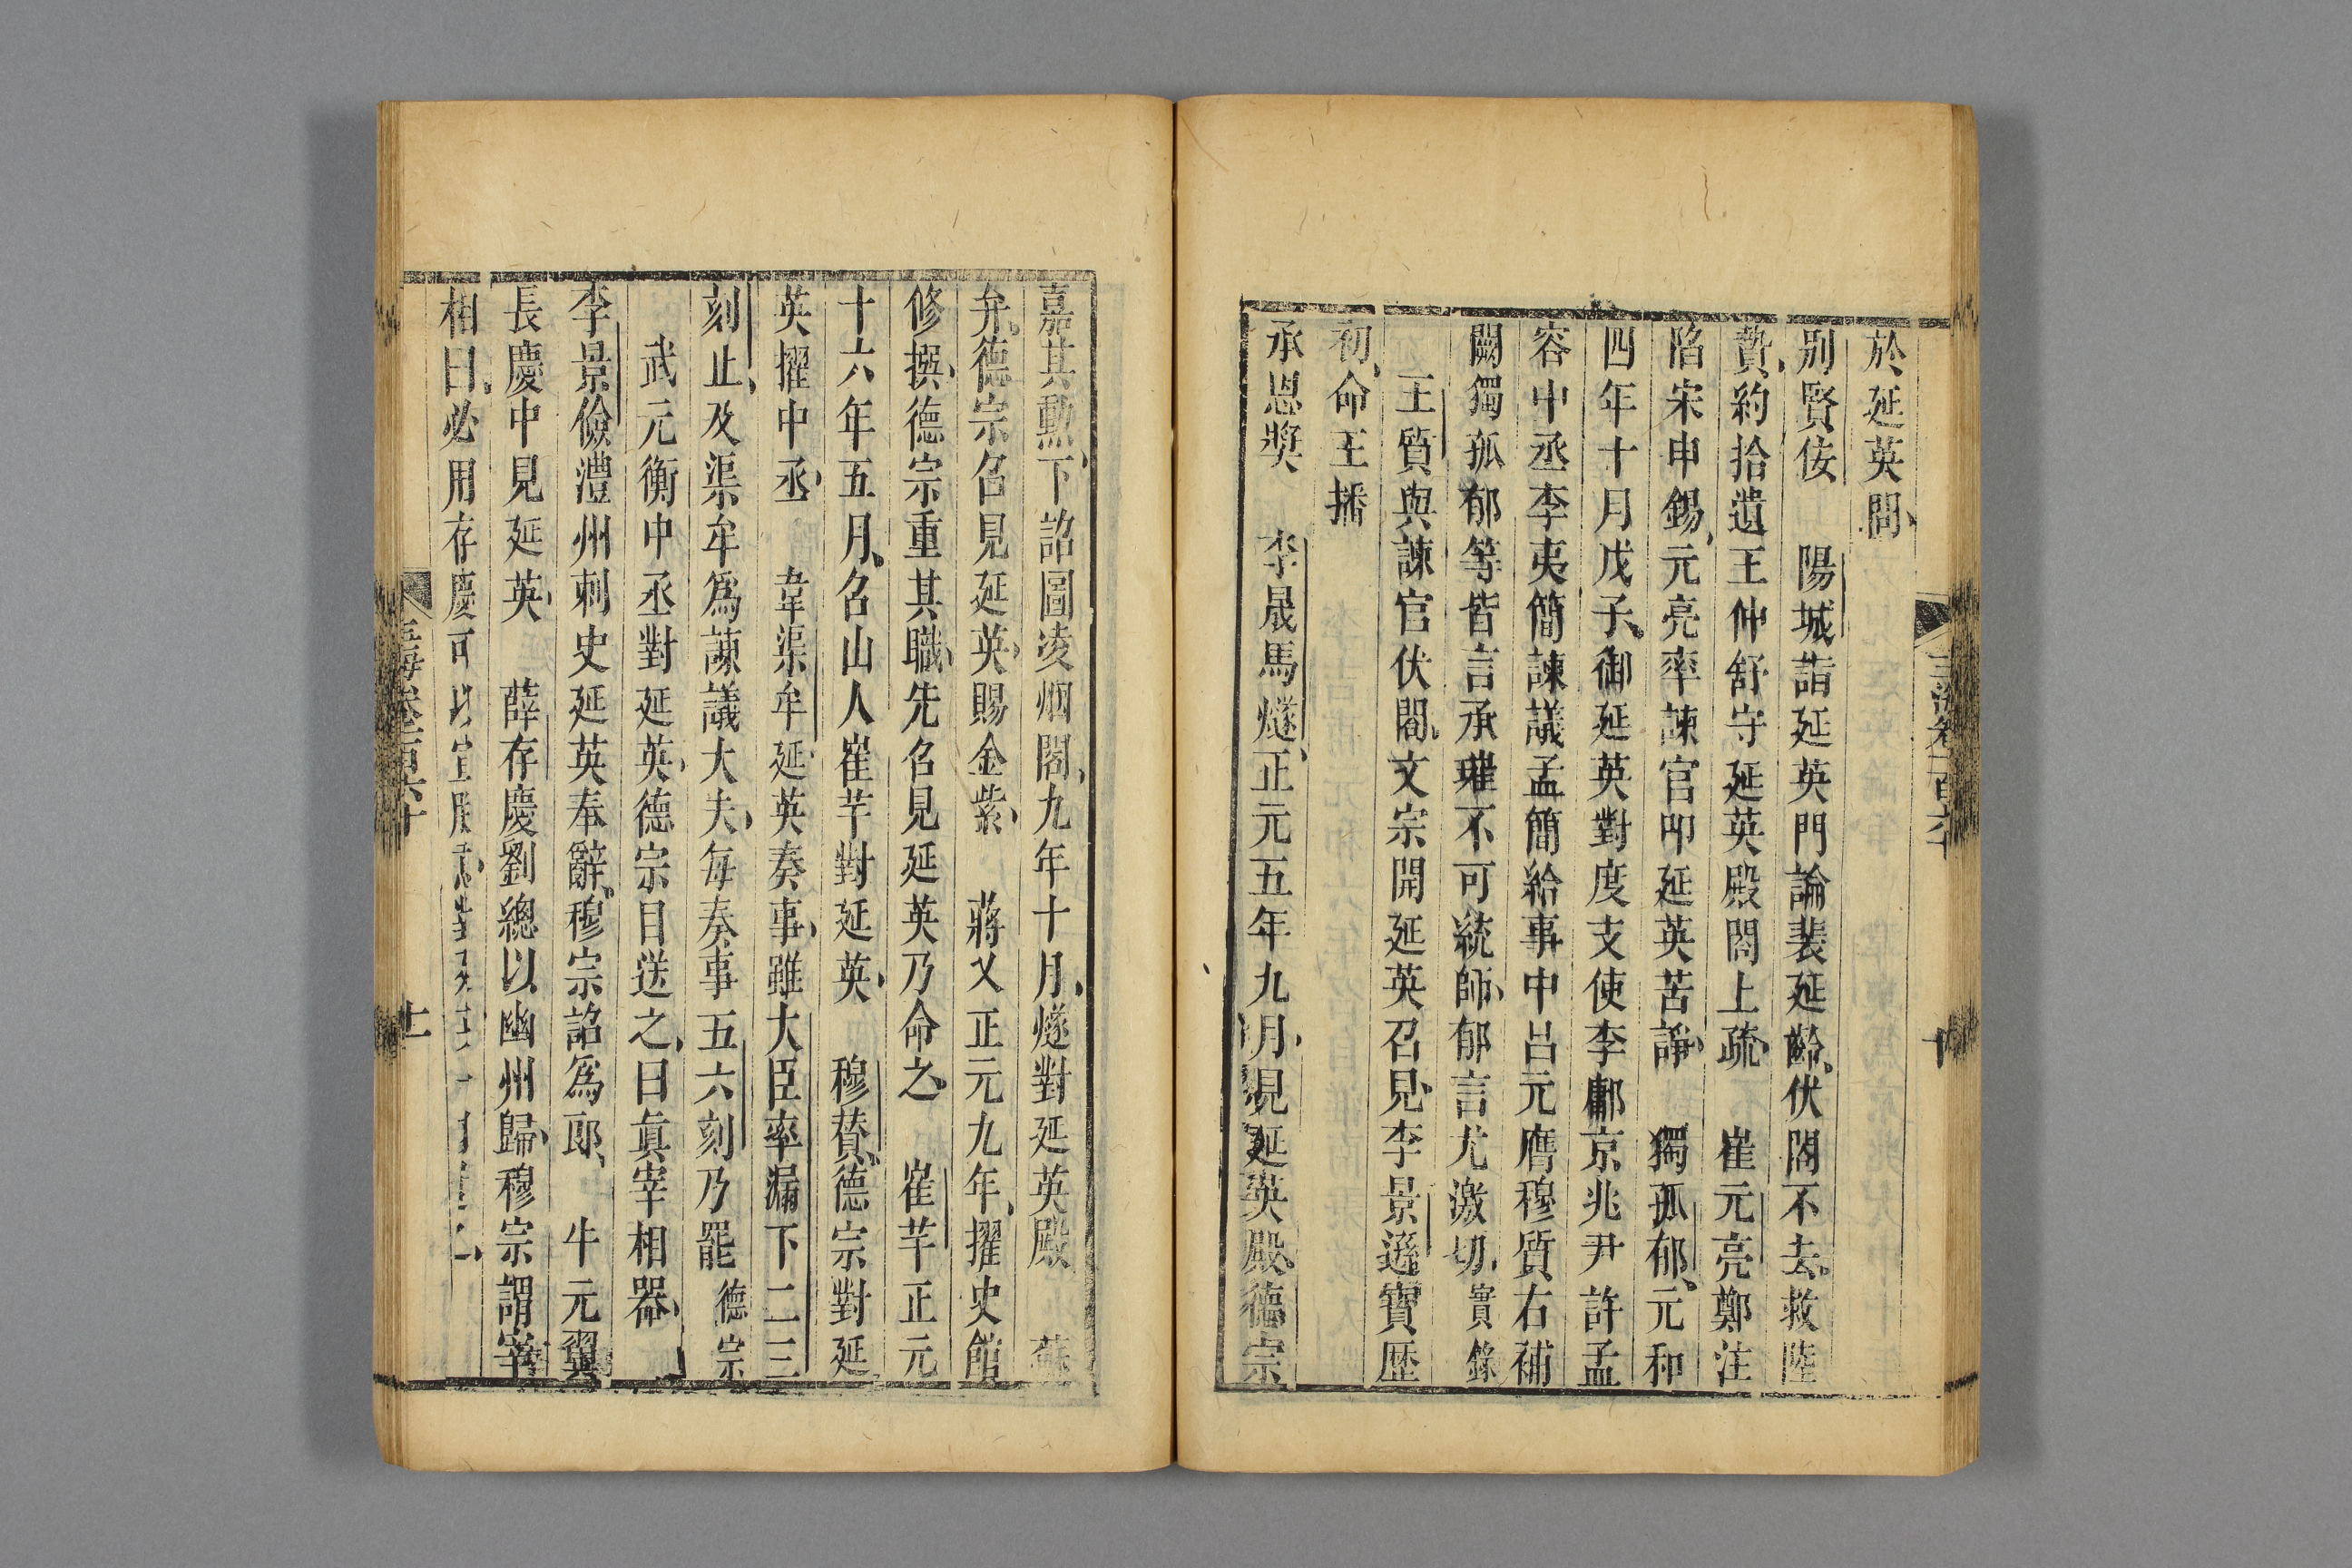 於延英閤
別賢佞　陽城詣延英門論裴延齡伏閤不去救陸
贄約拾遺王仲舒守延英殿閤上疏　崔元亮鄭注
陷宋申錫元亮率諫官叩延英苦諍　獨孤郁元和
四年十月戊子御延英對度支使李鄘京兆尹許孟
容中丞李夷簡諫議孟簡給事中呂元膺穆質右補
闕獨孤郁等皆言承璀不可統師郁言尤激切實錄
王質與諫官伏閤文宗開延英召見李景遜寶歷
初命王播
承恩奬　李晟馬燧正元五年九月見延英殿德宗
嘉其勲下詔圖凌烟閣九年十月燧對延英殿　蘇
弁德宗召見延英賜金紫　蔣乂正元九年擢史館
修撰德宗重其職先召見延英乃命之　崔芊正元
十六年五月召山人崔芊對延英　穆贊德宗對延
英擢中丞　韋渠牟延英奏事雖大臣率漏下二三
刻止及渠牟爲諫議大夫每奏事五六刻乃罷德宗
武元衡中丞對延英德宗目送之曰真宰相器
李景儉澧州刺史延英奉辭穆宗詔爲郎　牛元翼
長慶中見延英　薛存慶劉總以幽州歸穆宗謂宰
相曰必用存慶可以宣朕意對延英
卷二百六十
十一